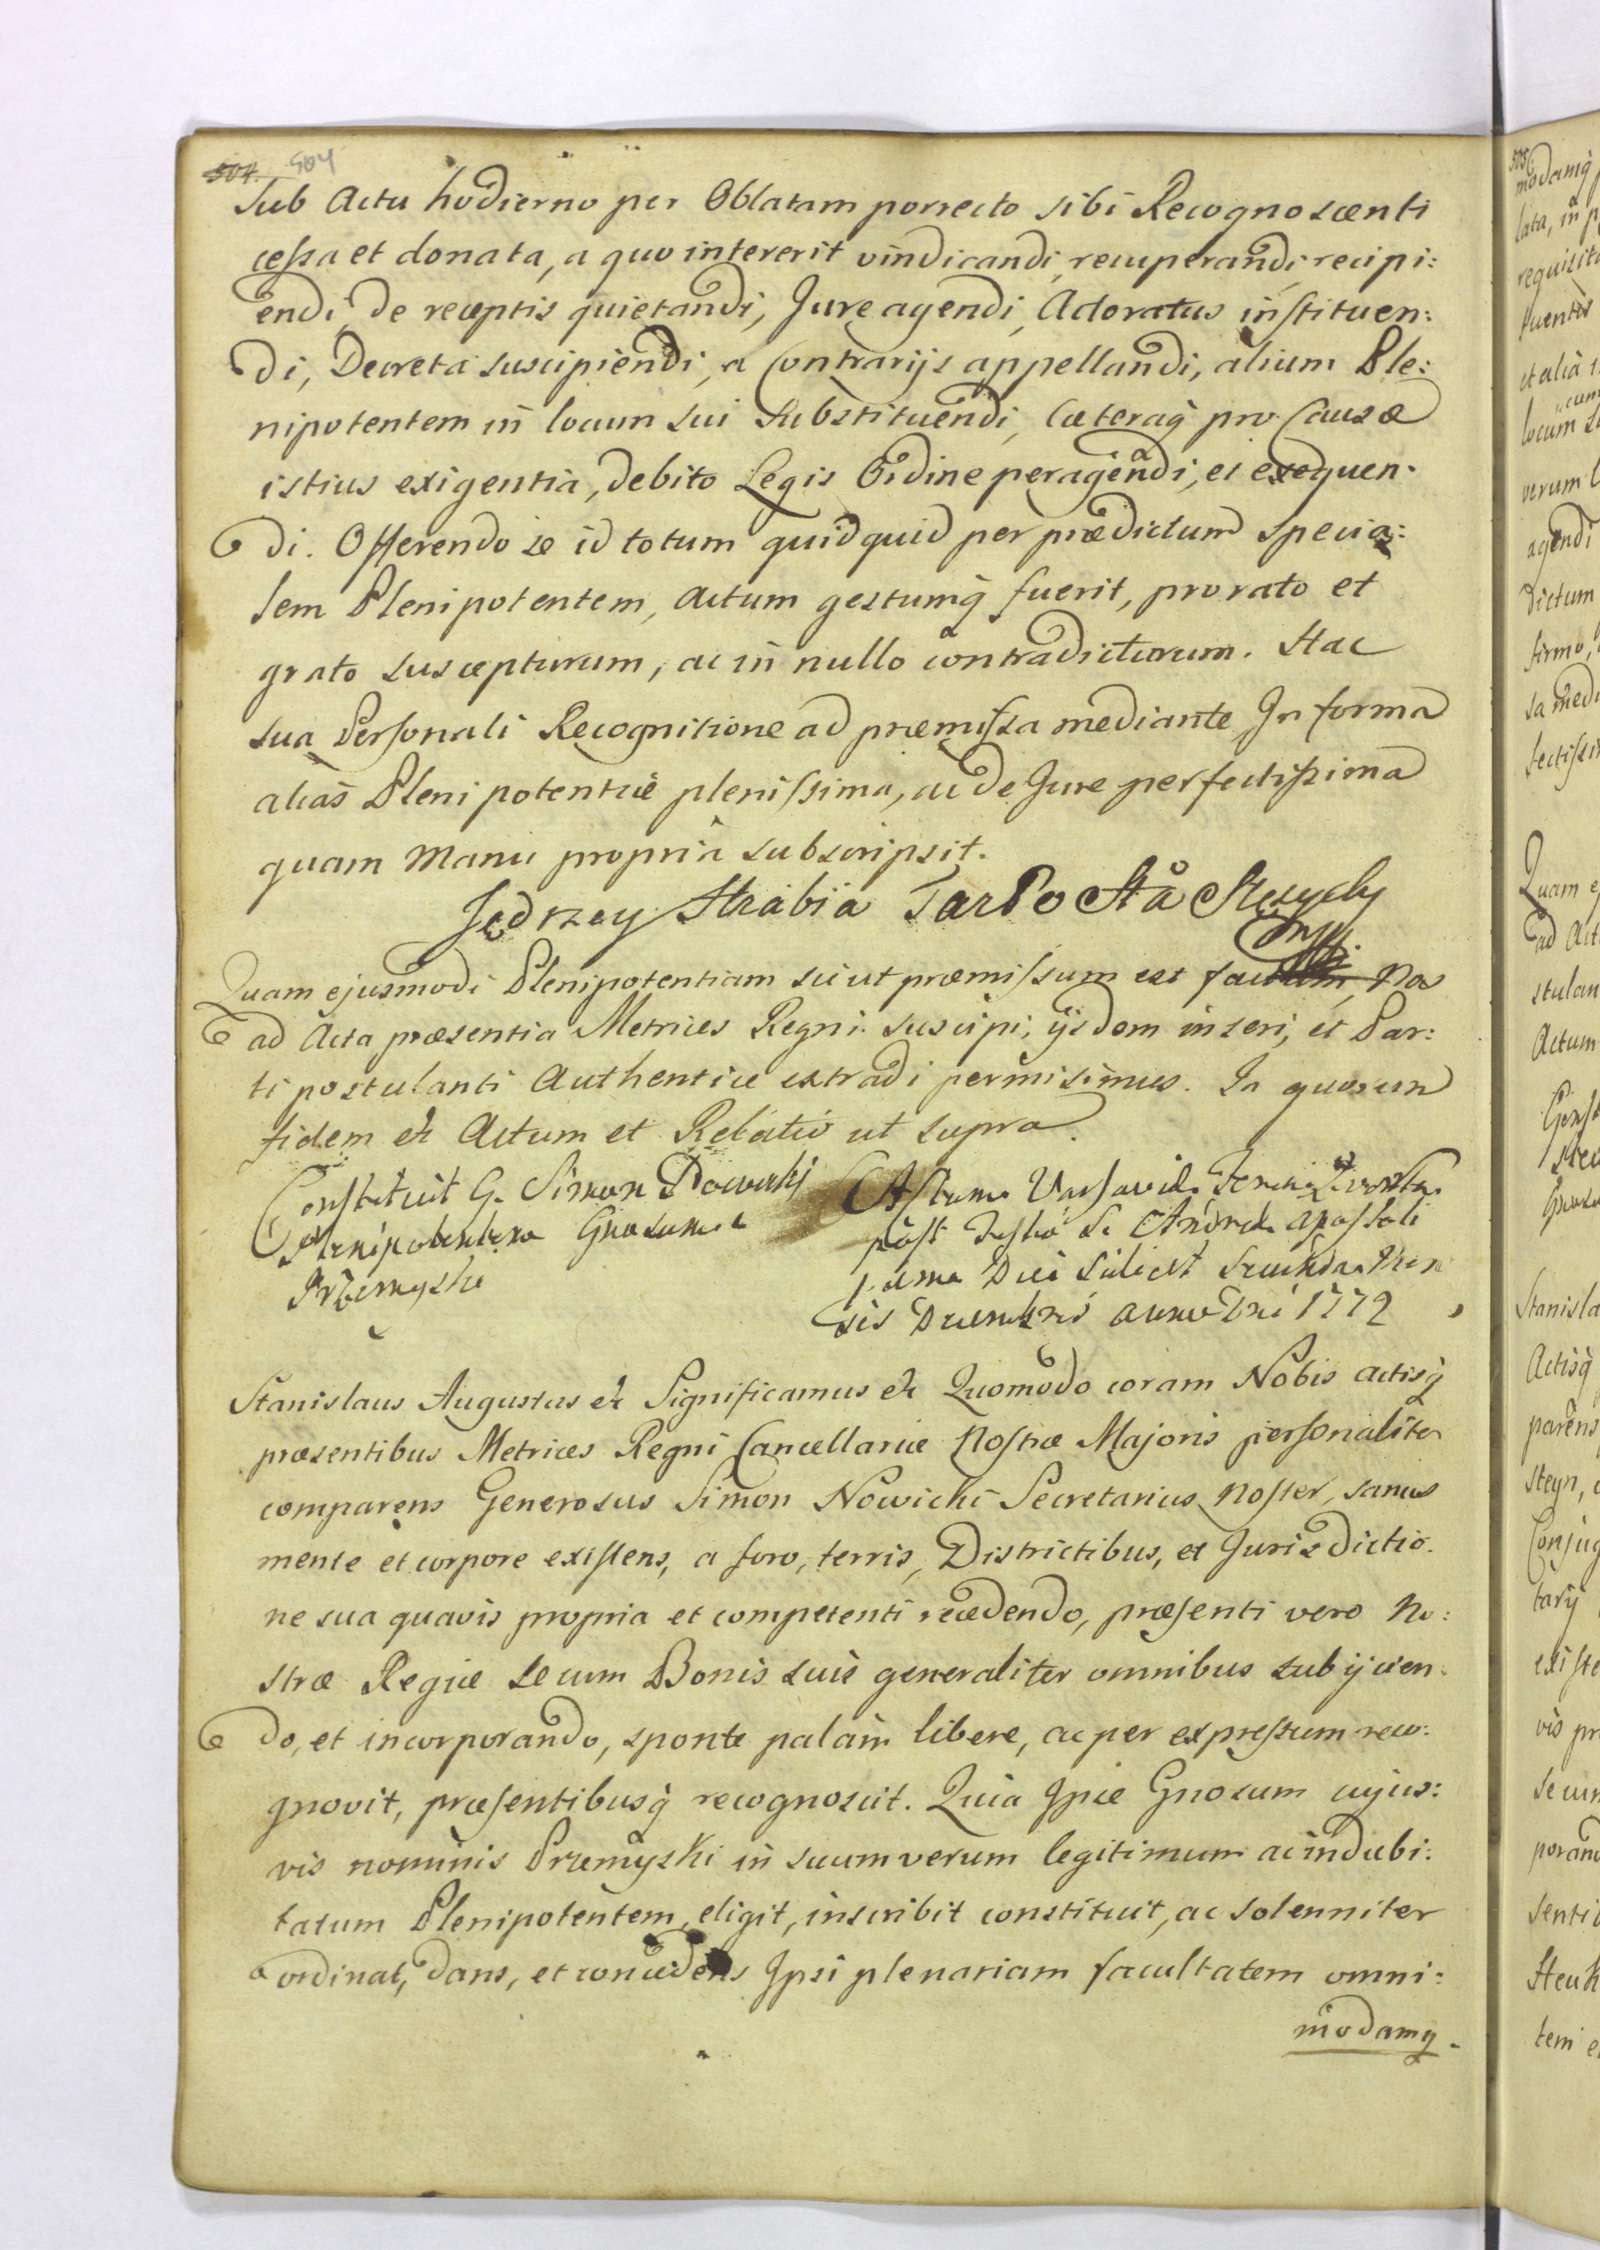 504. 504
Sub Actu hodierno per Oblatam porrecto sibi Recognoscenti
cessa et donata, a quo intererit vindicandi, recuperandi, recipi:
endi, de receptis quietandi, Jure agendi, Actoratus instituen:
di, Decreta suscipiendi, a Contrarijs appellandi, alium Ple:
nipotentem in locum sui substituendi, Cæteraq̃ pro Causæ
istius exigentia, debito Legis Ordine peragendi, et exequen.
di. Offerendo se id totum quidquid per prædictum specia:
lem Plenipotentem, actum gestumq̃ fuerit, pro rato et
grato suscepturum, ac in nullo contradicturum. Hac
sua Personali Recognitione ad præmissa mediante In forma
alias Plenipotentiæ plenissima, ac de Jure perfectissima
quam Manu propria subscripsit.
Jędrzey Hrabia
Quam ejusmodi Plenipotentiam sicut præmissum est Nos
ad Acta præsentia Metrices Regni suscipi, ijsdem inseri, et Par:
ti postulanti Authentice extradi permisimus. In quorum
fidem et Actum et Relatio ut supra.
Constituit G. Simon Nowicki
Plenipotentem Gnosum
Przemyski
Actum Varsaviæ Feria Quarta
post Festum S. Andreæ Apostoli
Die Scilicet Secunda Men
sis Decembris Anno Dni 1772
Stanislaus Augustus et Significamus et Quomodo coram Nobis actisq̃
præsentibus Metrices Regni Cancellariæ Nostræ Majoris personaliter
comparens Generosus Simon Nowicki Secretarius Noster, sanus
mente et corpore existens, a foro, terris, Districtibus, et Jurisdictio.
ne sua quavis propria et competenti recedendo, præsenti vero No:
stræ Regiæ se cum Bonis suis generaliter omnibus subijcien.
do, et incorporando, sponte palam libere, ac per expressum reco:
gnovit, præsentibusq̃ recognoscit. Quia Ipse Gnosum cujus:
vis nominis Przemyski in suum verum legitimum ac indubi:
tatum Plenipotentem, eligit, inscribit constituit, ac solenniter
ordinat, dans, et concedens Ipsi plenariam facultatem omni:
modamq̃.